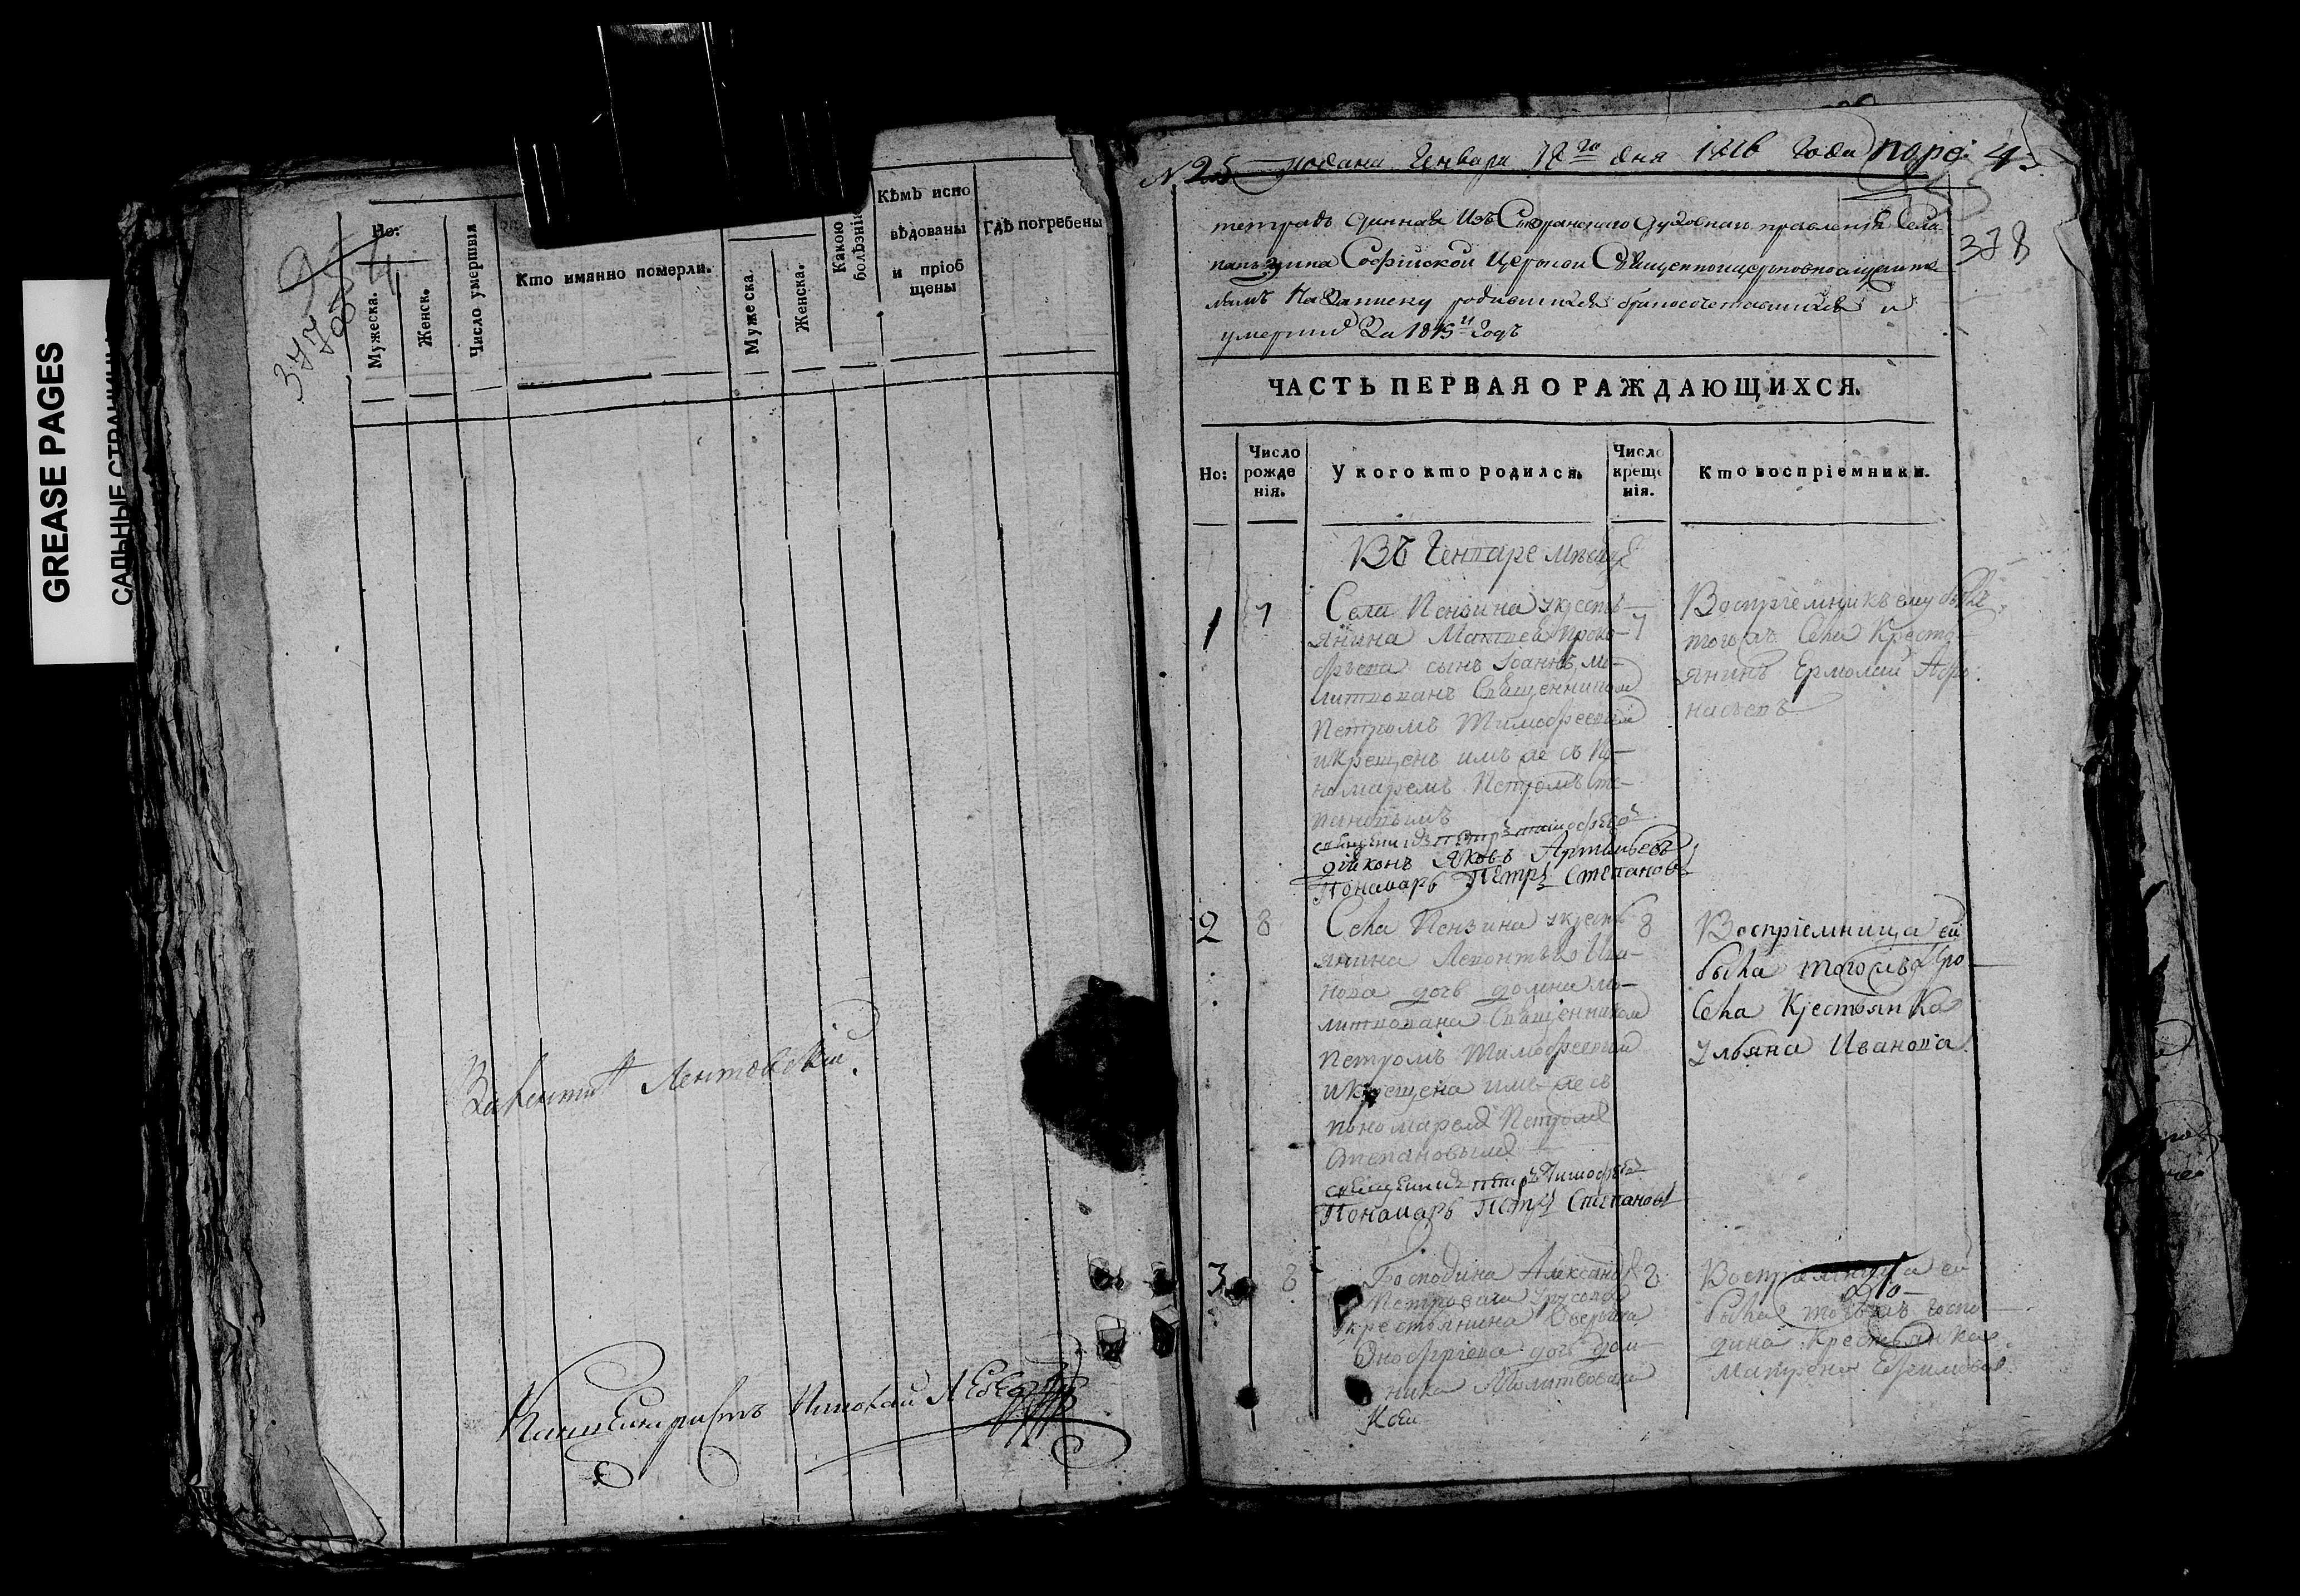 GREASE PAGES
САЛЬНЫЕ СТРАНИЦЫ
377
Но:
Мужеска.
Женск.
Число умершвія
Кто имянно померли.
Мужеска.
Женска.
Какою болѣзнію
Кѣмъ испо
вѣдованы
и пріоб
щены
Гдѣ погребены
Лентовскій
Канцеляристъ Николай
N 25 подана Генваря го дня 1816 года 4
378
тетрадь данная Изъ Сызранскаго Духовнаго правленія Села
Софійской Церкви Священноцерковнослужите
лямъ На Записку родившихся бракосочетавшихся и
умершихъ За 1815й Годъ
ЧАСТЬ ПЕРВАЯ О РАЖДАЮЩИХСЯ.
Но:
Число
рожде
нія.
У кого кто родился.
Число
креще
нія.
Кто воспріемники.
Въ Генваре мѣсяце
1 7
Села Пензина укресть
янина Матвея Проко 7
фьева сынъ Іоаннъ мо
литвованъ Священникомъ
Петромъ Тимофеевымъ
икрещенъ имъ же съ По
номаремъ Петромъ Сте
пановымъ
священникъ петръ тимофѣевъ
дііаконъ Яковъ Артемьевъ
Пономарь Петръ Степановъ
Воспріемникъ ему былъ
тогожъ Села Кресть
янинъ Ермолай Афо
насьевъ
2 8
Села Пензина укресть 8
янина Леонтья Ива
нова дочь домна мо
литвована Священникомъ
Петромъ Тимофеевымъ
икрещена имъ же съ
пономаремъ Петромъ
Степановымъ
священникъ петръ Тимофѣевъ
Пономарь Петръ Степановъ
Воспріемница ей
была тогожъ
Села Крестьянка
Ульяна Иванова
3 8
Господина Александра 8
Петровича
укрестьянина
дочь дом
ника Молитвована
Воспріемница ей
была тогожъ госпо
дина Крестьянка
Матрена Ефимова